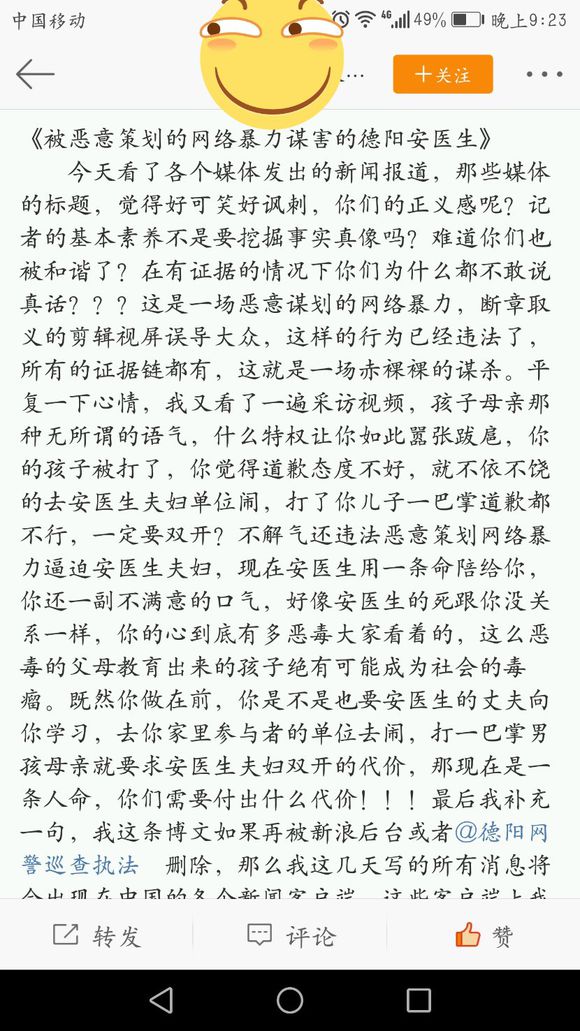 中国移动
4G 49% 晚上9:23
...
+关注
《被恶意策划的网络暴力谋害的德阳安医生》
今天看了各个媒体发出的新闻报道，那些媒体
的标题，觉得好可笑好讽刺，你们的正义感呢？记
者的基本素养不是要挖掘事实真像吗？难道你们也
被和谐了？在有证据的情况下你们为什么都不敢说
真话？？？这是一场恶意谋划的网络暴力，断章取
义的剪辑视屏误导大众，这样的行为已经违法了，
所有的证据链都有，这就是一场赤裸裸的谋杀。平
复一下心情，我又看了一遍采访视频，孩子母亲那
种无所谓的语气，什么特权让你如此嚣张跋扈，你
的孩子被打了，你觉得道歉态度不好，就不依不饶
的去安医生夫妇单位闹，打了你儿子一巴掌道歉都
不行，一定要双开？不解气还违法恶意策划网络暴
力逼迫安医生夫妇，现在安医生用一条命陪给你，
你还一副不满意的口气，好像安医生的死跟你没关
系一样，你的心到底有多恶毒大家看着的，这么恶
毒的父母教育出来的孩子绝有可能成为社会的毒
瘤。既然你做在前，你是不是也要安医生的丈夫向
你学习，去你家里参与者的单位去闹，打一巴掌男
孩母亲就要求安医生夫妇双开的代价，那现在是一
条人命，你们需要付出什么代价！！！最后我补充
一句，我这条博文如果再被新浪后台或者@德阳网
警巡查执法 删除，那么我这几天写的所有消息将
会出现在中国的各个新闻客户端，这些客户端上我
转发
评论
赞